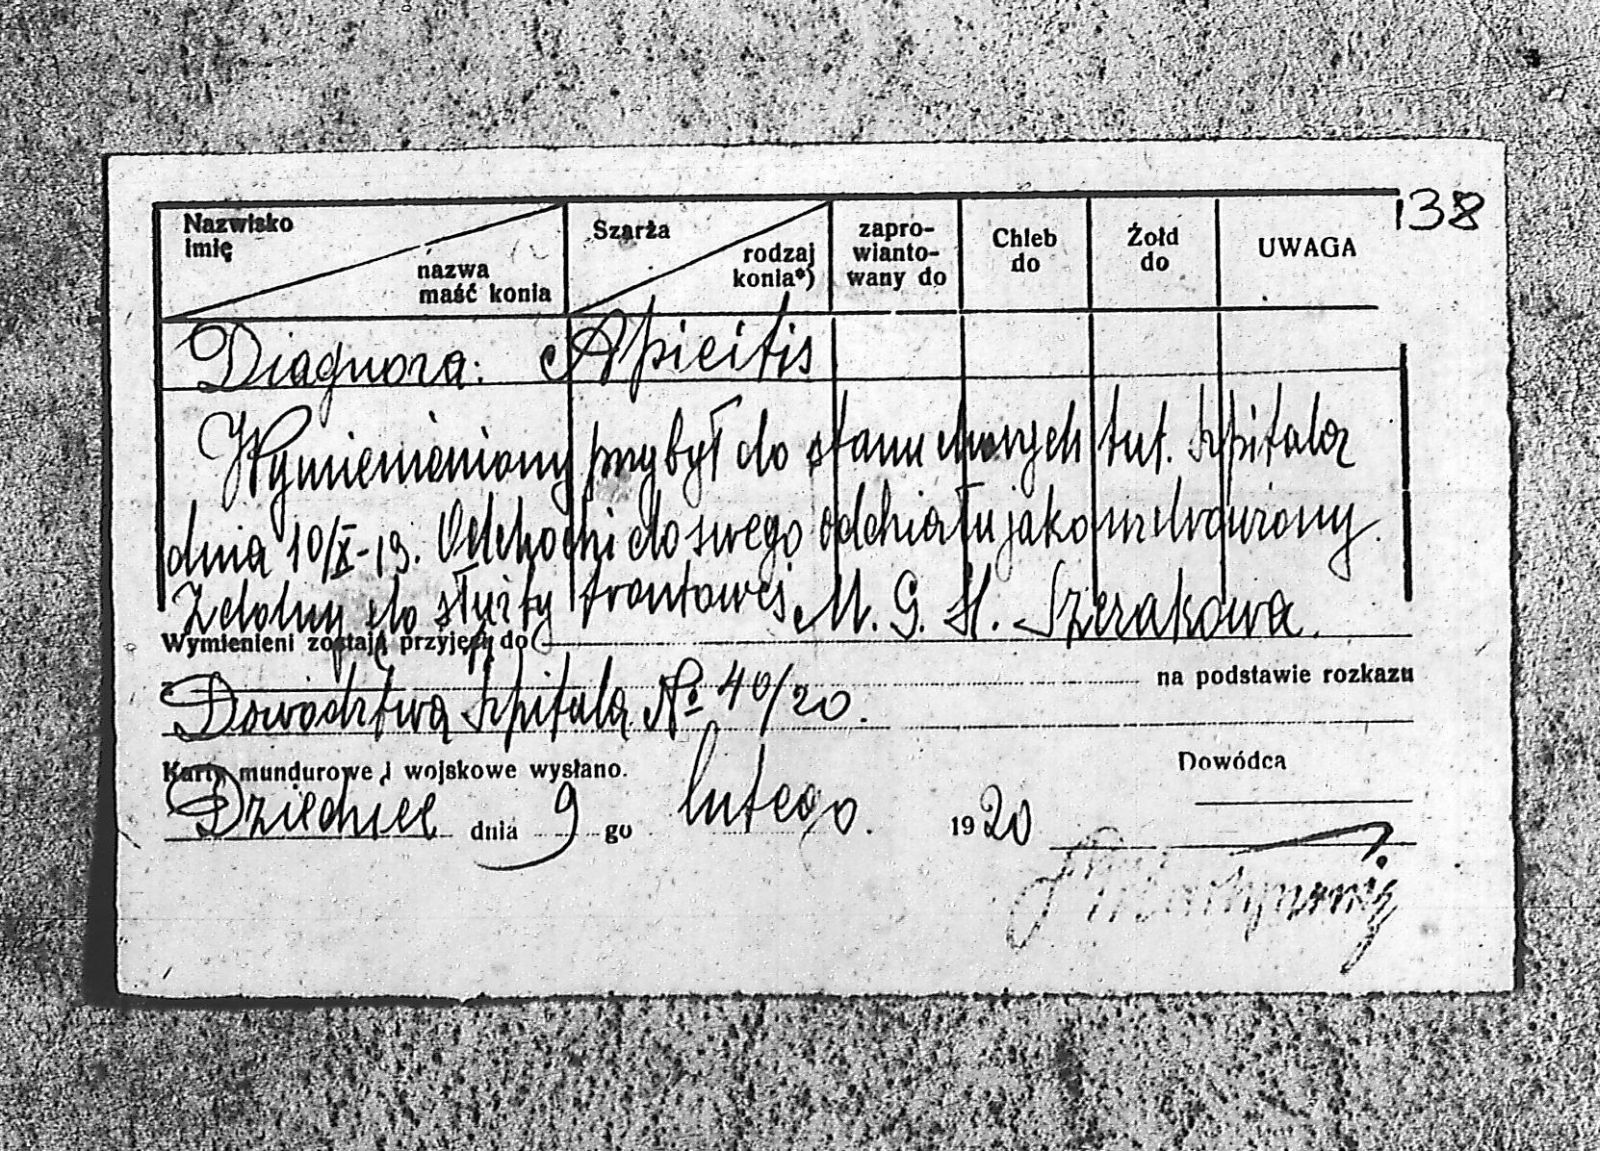 138
Nazwisko
imię
nazwa
maść konia
Szarża
rodzaj
konia*)
zapro-
wianto-
wany do
Chleb
do
Żołd
do
UWAGA
Diagnoza: Apicitis
Wymieniony przybył do stanu chorych tut. Szpitala
dnia 10/X-19. Odchodzi do swego oddziału jako uzdrowiony.
Zdolny do służby frontowej M. G. H. Szczakowa.
Wymienieni zostają przyjęci do
na podstawie rozkazu
Dowództwa Szpitala № 40/20.
Karty mundurowe i wojskowe wysłano.
Dowódca
Dziedzice dnia 9 go lutego. 1920